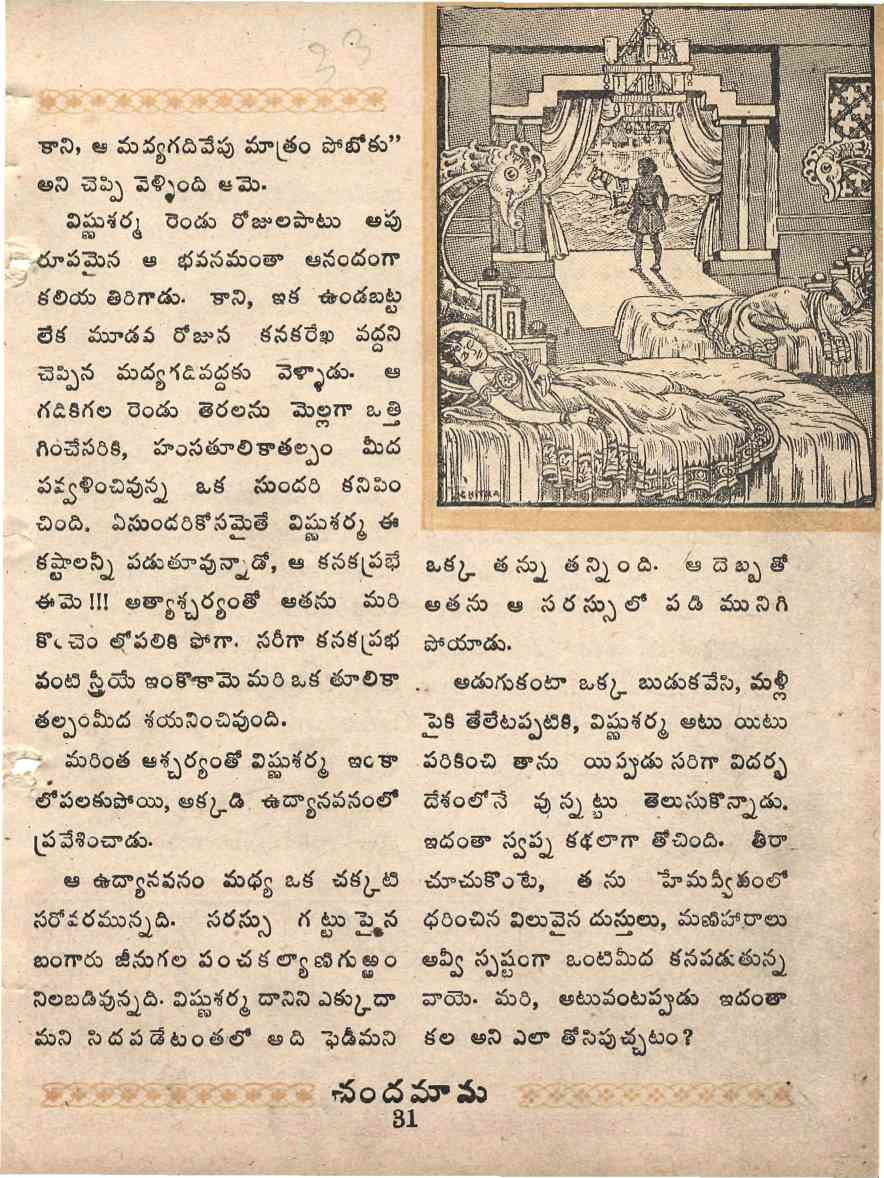 33
కాని, ఆ మద్యగదివేపు మాత్రం పోబోకు”
అని చెప్పి వెళ్ళింది ఆమె.
విష్ణుశర్మ రెండు రోజులపాటు అపు
రూపమైన ఆ భవనమంతా ఆనందంగా
కలియ తిరిగాడు. కాని, ఇక ఉండబట్ట
లేక మూడవ రోజున కనకరేఖ వద్దని
చెప్పిన మద్యగదివద్దకు వెళ్ళాడు. ఆ
గదికిగల రెండు తెరలను మెల్లగా ఒత్తి
గించేసరికి, హంసతూలికాతల్పం మీద
పవ్వళించివున్న ఒక సుందరి కనిపిం
చింది. ఏసుందరికోసమైతే విష్ణుశర్మ ఈ
కష్టాలన్నీ పడుతూవున్నాడో, ఆ కనకప్రభే
ఈమె!!! అత్యాశ్చర్యంతో ఆతను మరి
కొంచెం లోపలికి పోగా. సరీగా కనకప్రభ
వంటి స్త్రీయే ఇంకొకామె మరి ఒక తూలికా
తల్పంమీద శయనించివుంది.
మరింత ఆశ్చర్యంతో విష్ణుశర్మ ఇంకా
లోపలకుపోయి, అక్కడి ఉద్యానవనంలో
ప్రవేశించాడు.
ఆ ఉద్యానవనం మధ్య ఒక చక్కటి
సరోవరమున్నది. సరస్సు గట్టుపైన
బంగారు జీనుగల పంచకల్యాణిగుఱ్ఱం
నిలబడివున్నది. విష్ణుశర్మ దానిని ఎక్కుదా
మని సిదపడేటంతలో అది ఫెడీమని
CHITRA
ఒక్క తన్ను తన్నింది. ఆ దెబ్బతో
అతను ఆ సరస్సులో పడి మునిగి
పోయాడు.
అడుగుకంటా ఒక్క బుడుకవేసి, మళ్లీ
పైకి తేలేటప్పటికి, విష్ణుశర్మ అటు యిటు
పరికించి తాను యిప్పుడు సరిగా విదర్భ
దేశంలోనే వున్నట్టు తెలుసుకొన్నాడు.
ఇదంతా స్వప్న కథలాగా తోచింది. తీరా
చూచుకొంటే, తను హేమద్వీపంలో
ధరించిన విలువైన దుస్తులు, మణిహారాలు
అవ్వీ స్పష్టంగా ఒంటిమీద కనపడుతున్న
వాయె. మరి, అటువంటప్పుడు ఇదంతా
కల అని ఎలా తోసిపుచ్చటం?
చందమామ
31